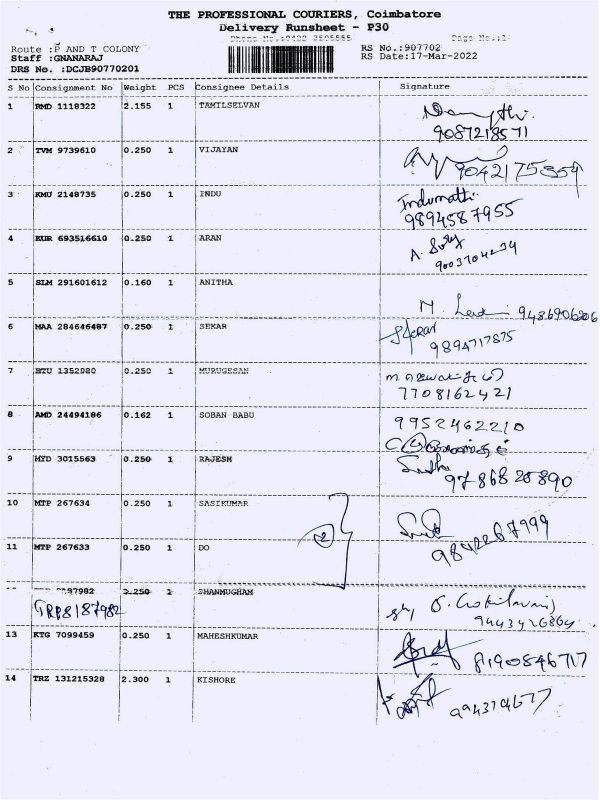 THE PROFESSIONAL COURIERS, Coimbatore
Delivery Runsheet - P30
Page No.:1
Route :P AND T COLONY
RS No.:907702
Staff :GNANARAJ
RS Date:17-Mar-2022
DRS No. :DCJB90770201
S No Consignment No Weight PCS Consignee Details Signature
1 RMD 1118322 2.155 1 TAMILSELVAN
9087218571
2 TVM 9739610 0.250 1 VIJAYAN
9042175359
3 KMU 2148735 0.250 1 INDU Indumathi
9894587955
4 KUR 693516610 0.250 1 ARAN
9003704234
5 SLM 291601612 0.160 1 ANITHA
9486906206
6 MAA 284646487 0.250 1 SEKAR
9894717875
7 BTU 1352080 0.250 1 MURUGESAN
7708162421
8 AMD 24494186 0.162 1 SOBAN BABU 9952462210
9 HYD 3015563 0.250 1 RAJESH
9786828890
10 MTP 267634 0.250 1 SASIKUMAR
2
9842267999
11 MTP 267633 0.250 1 DO
0.250 1 SHANMUGHAM
8187982
9443426864
13 KTG 7099459 0.250 1 MAHESHKUMAR
8190846717
14 TRZ 131215328 2.300 1 KISHORE